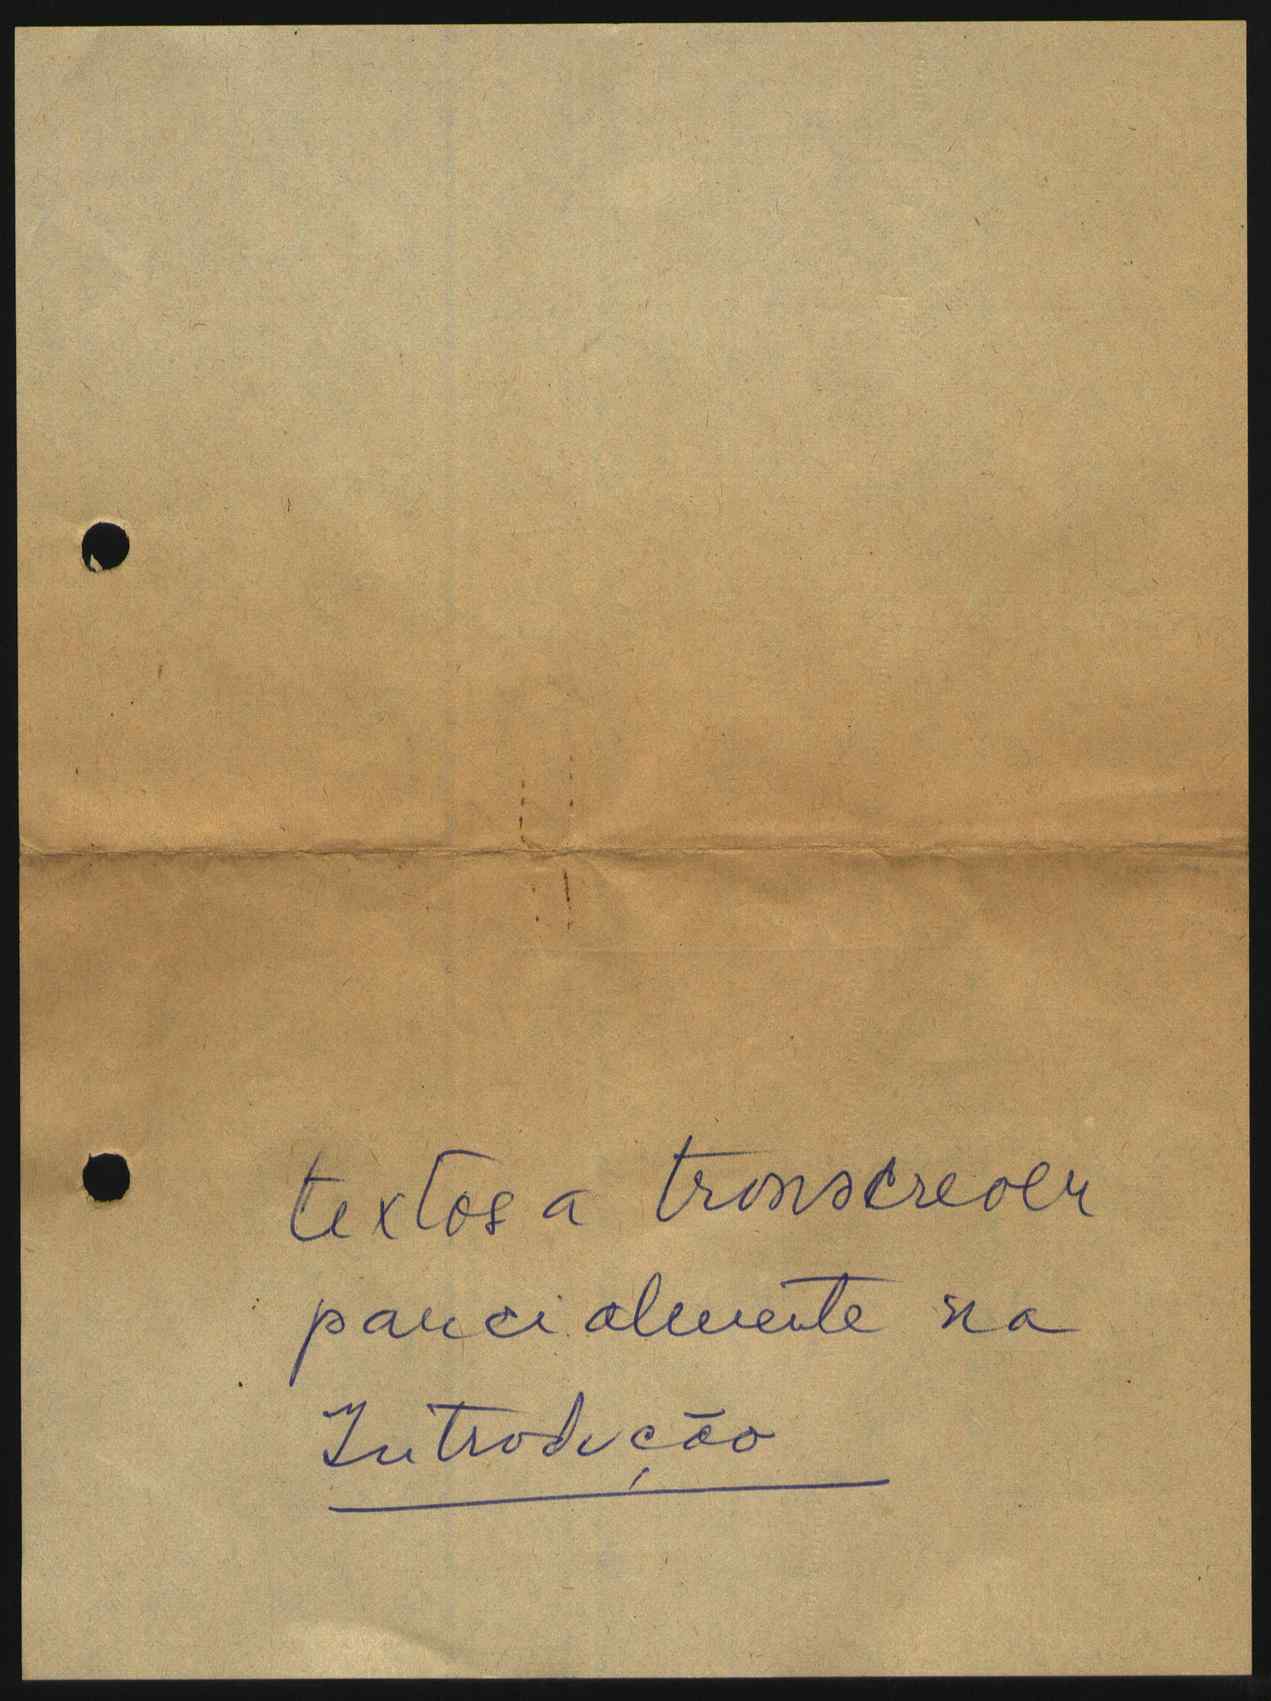 textos a transcrever
parcialmente na
Introdução